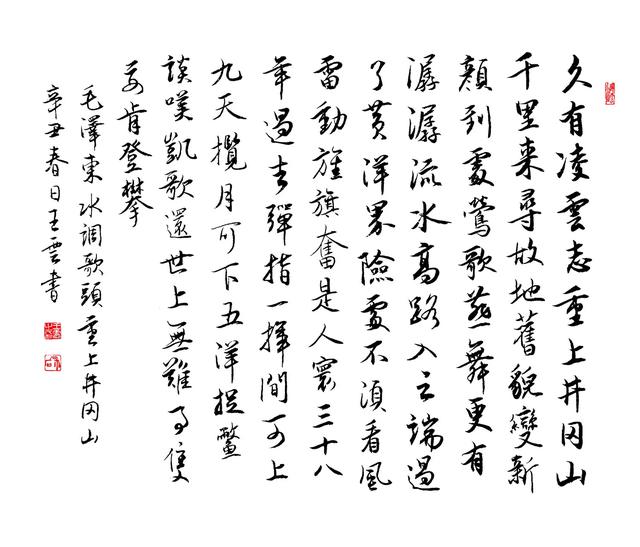 久有凌雲志重上井冈山
千里来尋故地舊貌變新
顔到處鶯歌燕舞更有
潺潺流水高路入云端過
了黄洋界險處不須看風
雷動旌旗奮是人寰三十八
年過去彈指一揮間可上
九天攬月可下五洋捉鱉
談笑凱歌還世上無難事隻
要肯登攀
毛澤東水調歌頭重上井冈山
辛丑春日王雲書